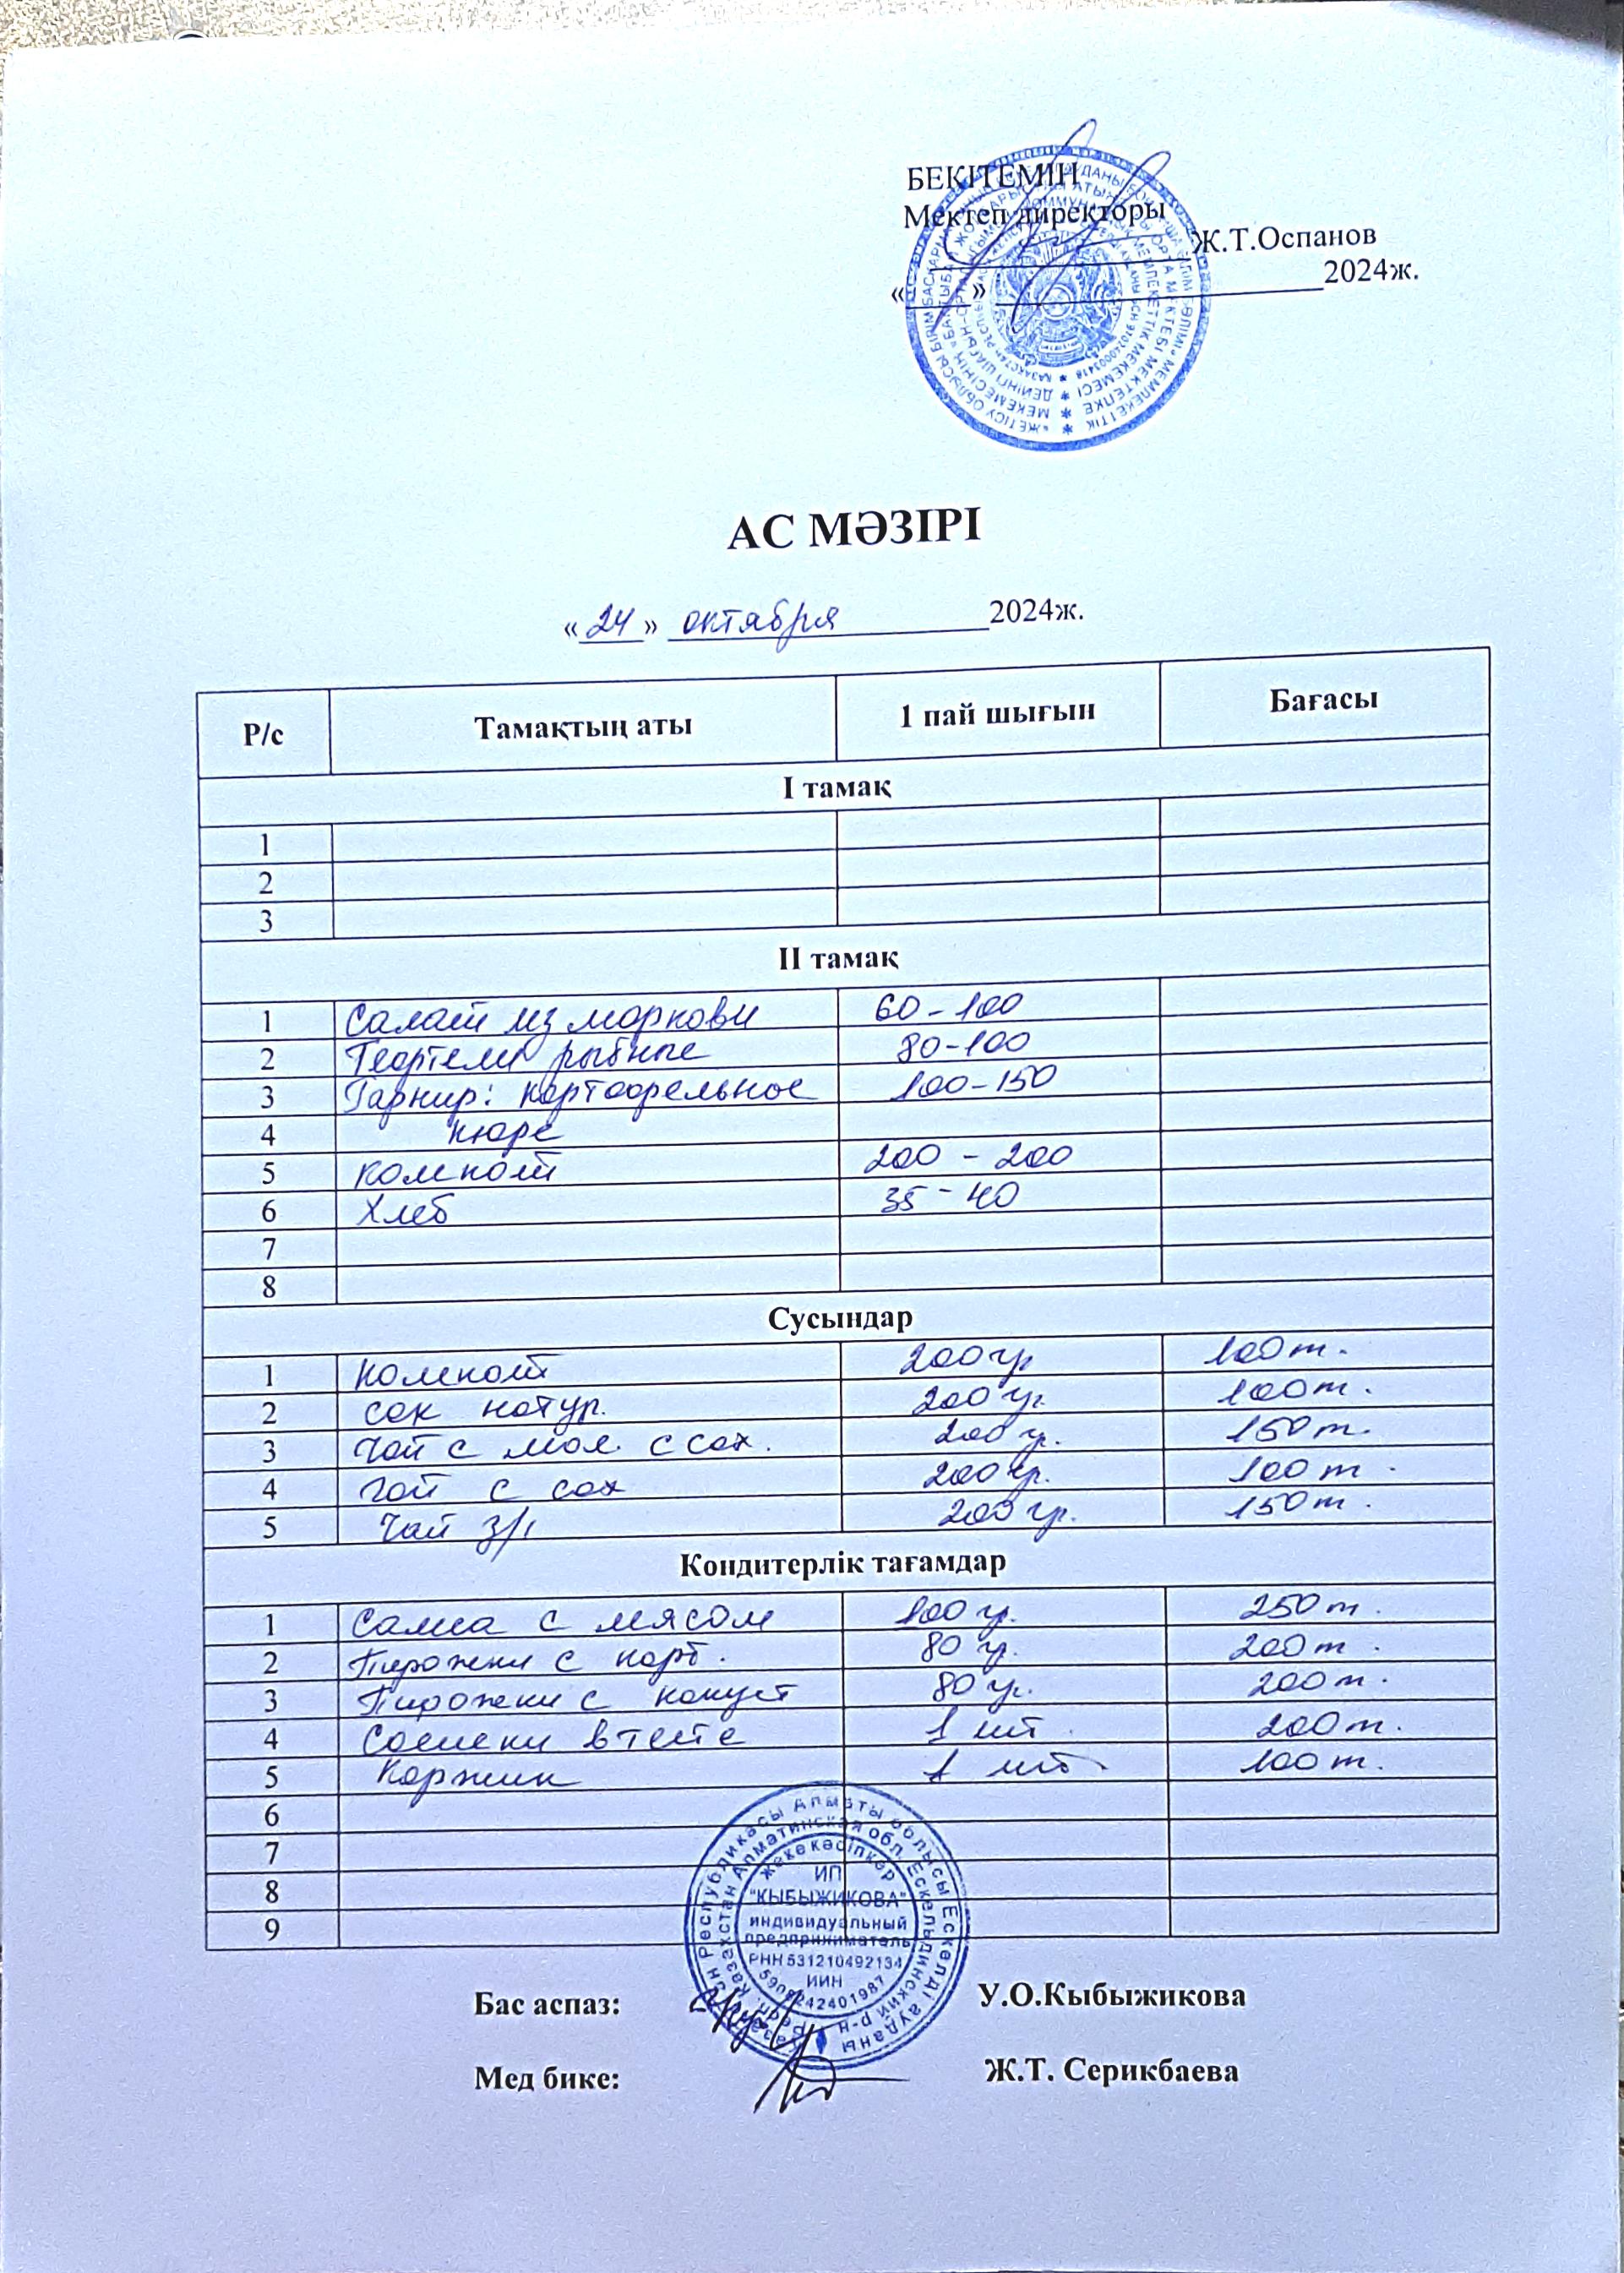 БЕКІТЕМІН
Мектеп директоры
Ж.Т.Оспанов
«____» ____________________2024ж.
АС МӘЗІРІ
«24» октября 2024ж.
Р/с Тамақтың аты 1 пай шығын Бағасы
I тамақ
1
2
3
II тамақ
1 Салат из моркови 60-100
2 Тефтели рыбные 80-100
3 Гарнир: картофельное 100-150
4 пюре
5 компот 200-200
6 Хлеб 35-40
7
8
Сусындар
1 Компот 200 гр 100т.
2 сок натур. 200 гр. 100т.
3 Чай с мол. с сах. 200 г. 150т.
4 Чай с сах 200 гр. 100т.
5 Чай з/ 200 гр. 150т.
Кондитерлік тағамдар
1 Самса с мясом 100 гр. 250т.
2 Пирожки с карт. 80 гр. 200т.
3 Пирожки с капуст 80 гр. 200т.
4 Сосиски в тесте 1 шт. 200т.
5 Коржик 1 шт. 100т.
6
7
8
9
жеке кәсіпкер
ИП
"КЫБЫЖИКОВА"
индивидуальный
предприниматель
РНН 531210492134
ИИН
590242401987
Бас аспаз: У.О.Кыбыжикова
Мед бике: Ж.Т. Серикбаева